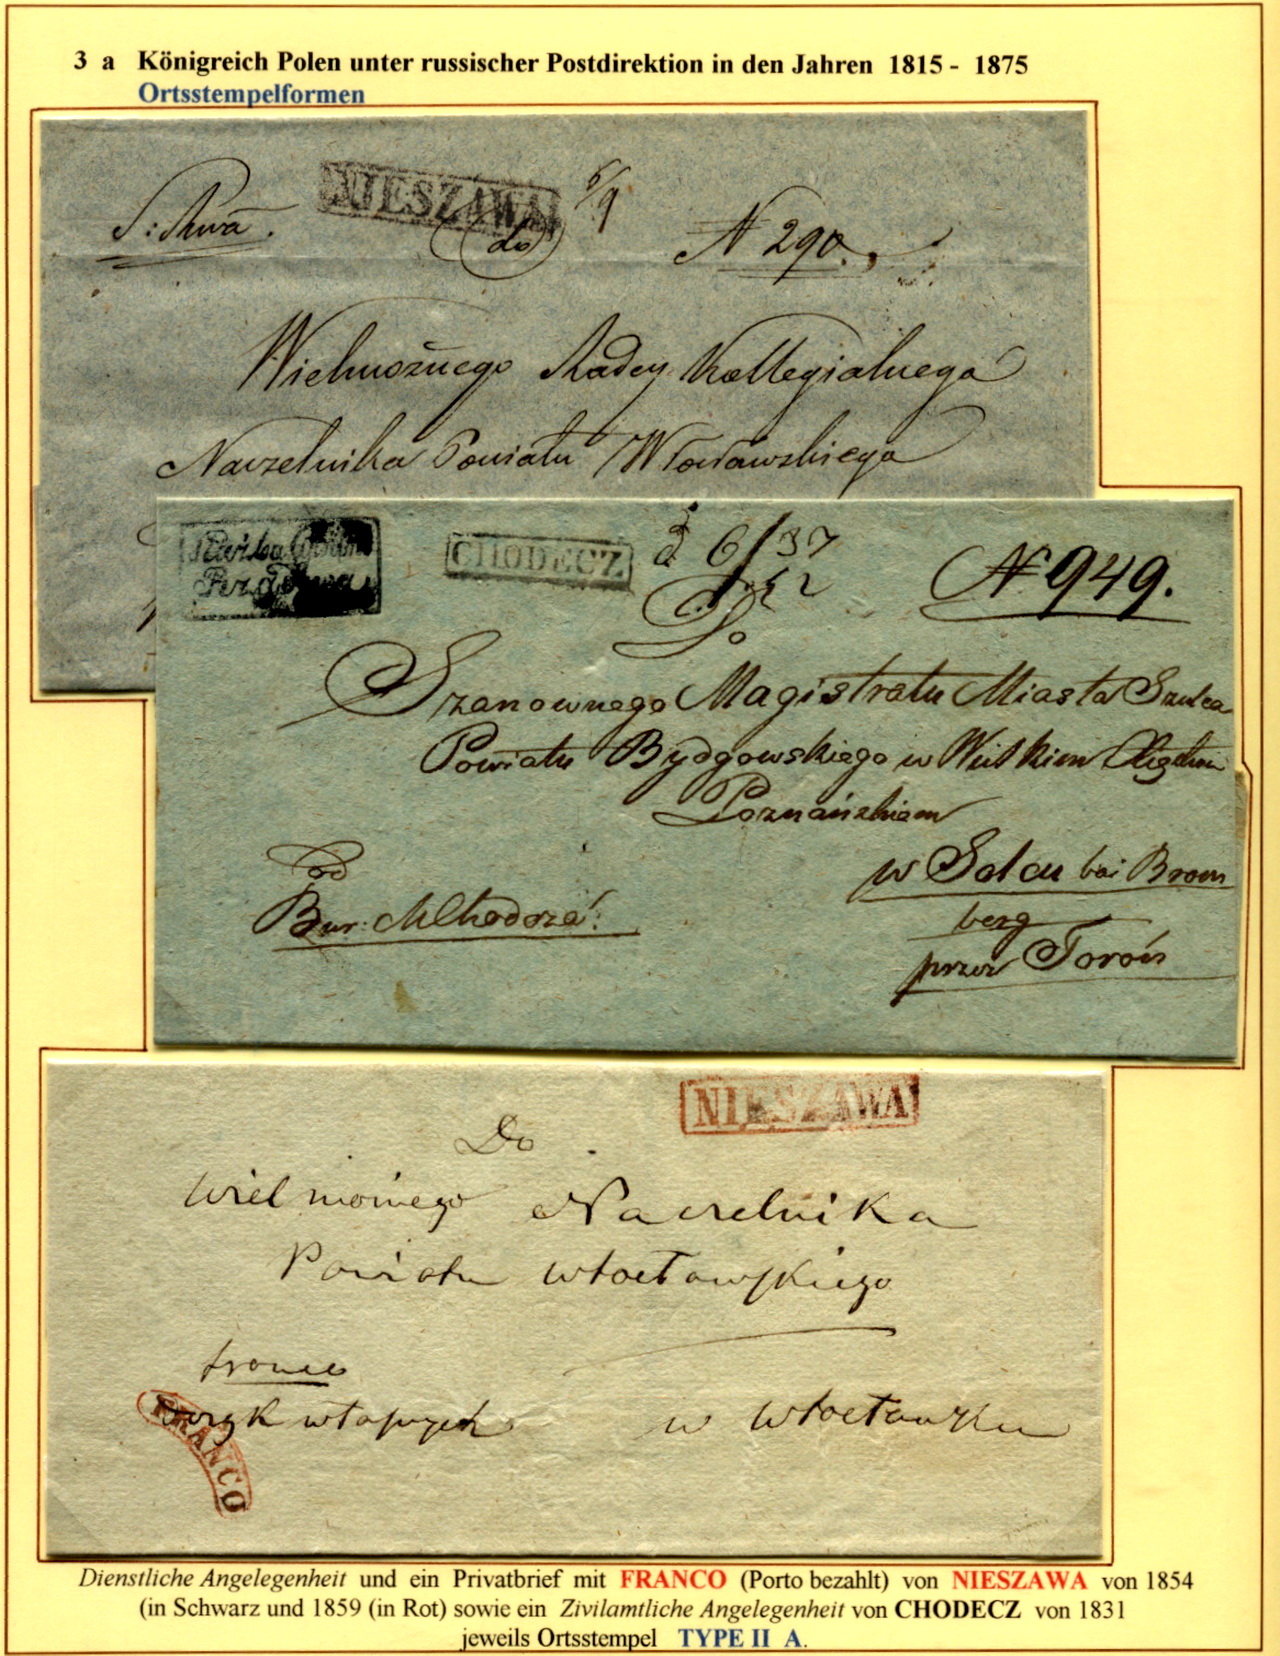 3 a Königreich Polen unter russischer Postdirektion in den Jahren 1815 - 1875
Ortsstempelformen
NIESZAWA
6/9
do
N 290.
Wielmożnego Radcy Kollegialnego
Naczelnika Powiatu Włocławskiego
CHODECZ
6/37
N 949.
Do
Szanownego Magistratu Miasta Szulca
Powiatu Bydgowskiego w Wielkiem
Poznańskiem
w Solcu bei Brom
berg
przez Toroń
od
Bur:
NIESZAWA
Do
Wielmożnego Naczelnika
Powiatu Włocławskiego
franco
w Włocławku
FRANCO
Dienstliche Angelegenheit und ein Privatbrief mit FRANCO (Porto bezahlt) von NIESZAWA von 1854
(in Schwarz und 1859 (in Rot) sowie ein Zivilamtliche Angelegenheit von CHODECZ von 1831
jeweils Ortsstempel TYPE II A.